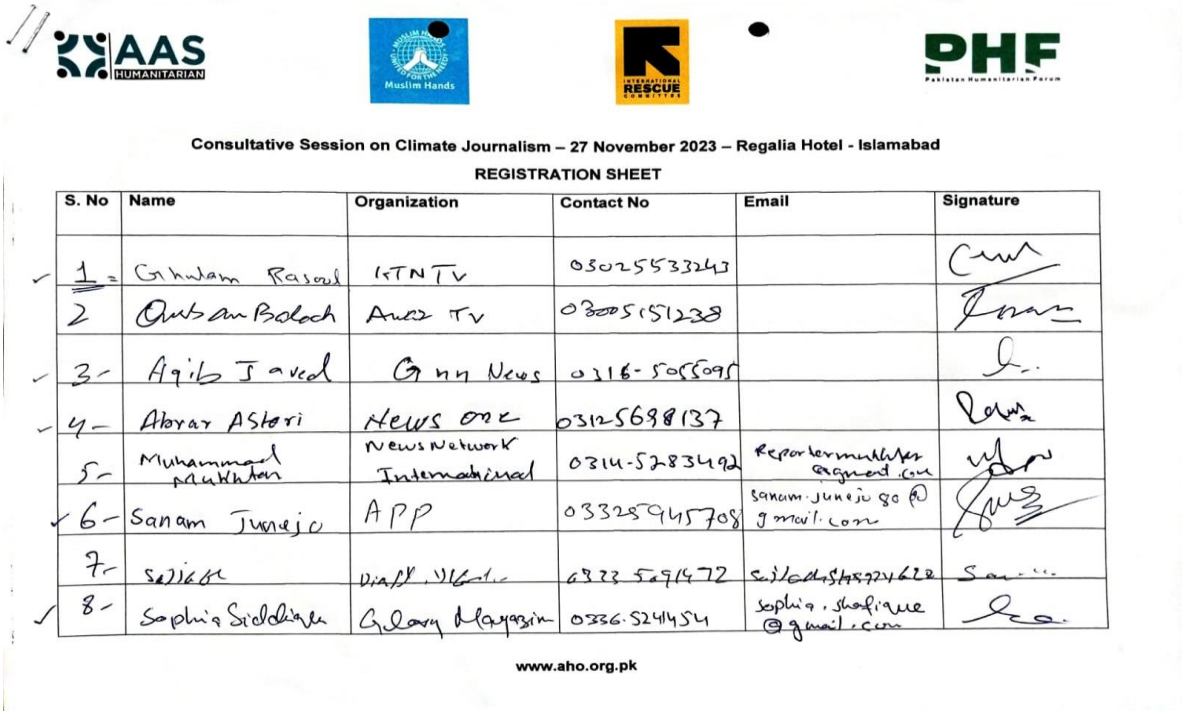 AAS
HUMANITARIAN
MUSLIM HANDS
UNITED FOR THE NEEDY
Muslim Hands
INTERNATIONAL
RESCUE
COMMITTEE
PHF
Pakistan Humanitarian Forum
Consultative Session on Climate Journalism – 27 November 2023 – Regalia Hotel - Islamabad
REGISTRATION SHEET
S. No Name Organization Contact No Email Signature
1 Ghulam Rasool KTN TV 03025533243
2 Qurban Baloch Awaz TV 03005151238
3- Aqib Javed Gnn News 0316-5055095
4- Abrar Astori News one 03125698137
5- Muhammad Mukhtar News Network International 0314-5283492
6- Sanam Junejo APP 03325945708 sanam.junejo80@gmail.com
7-
8- Sophia Siddiqui Glory Magazin 0336-5241454 sophia.shafique@gmail.com
www.aho.org.pk